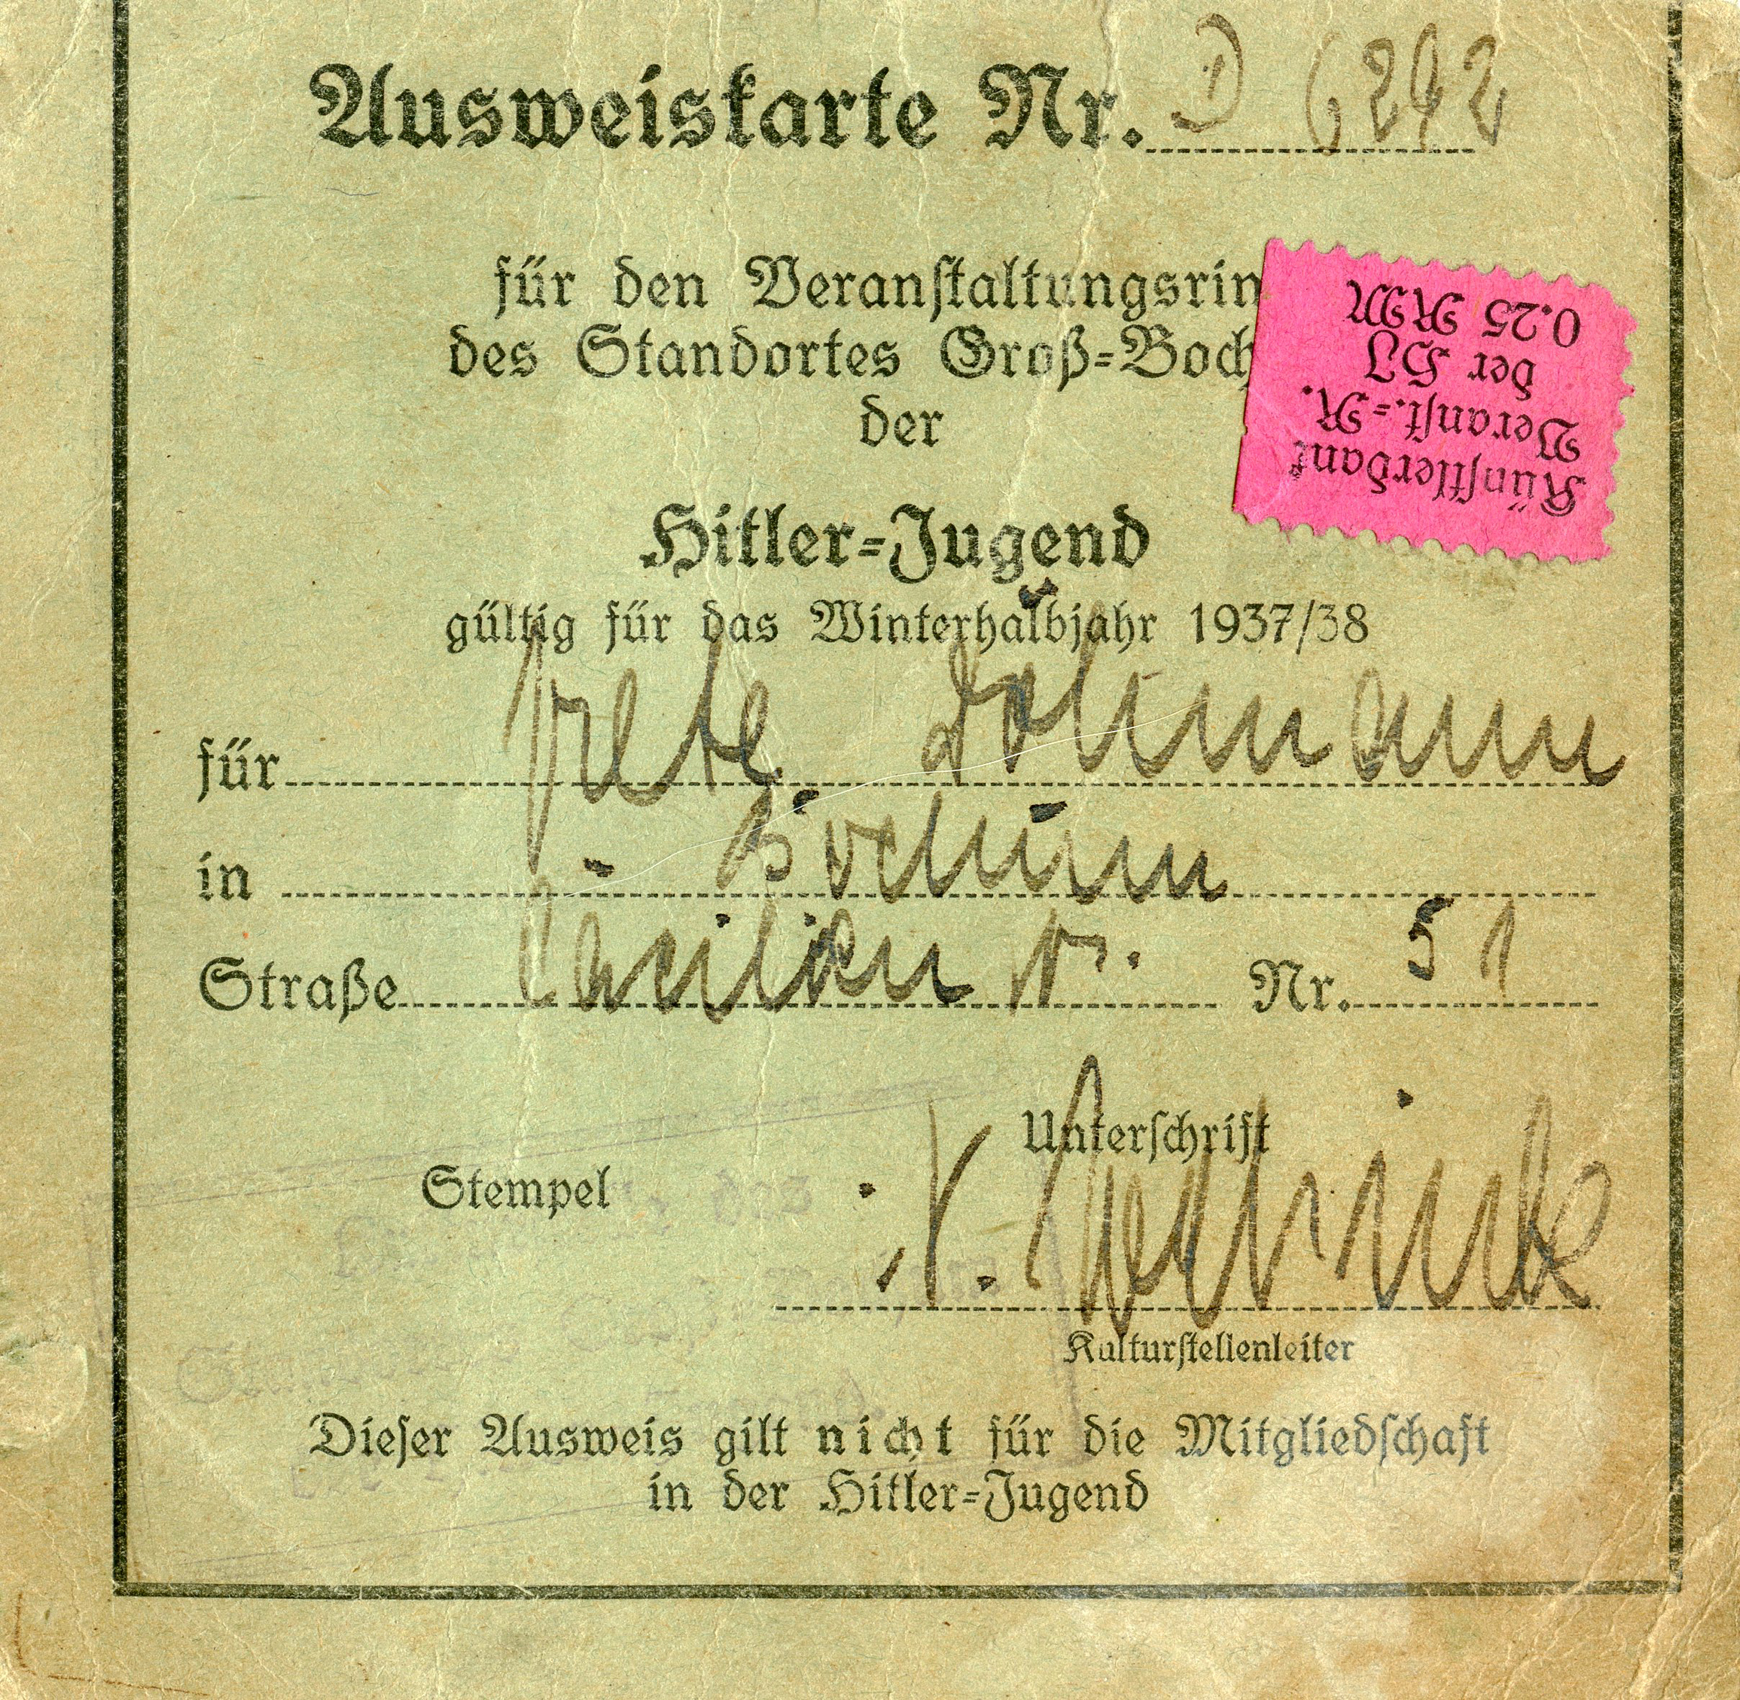 Ausweiskarte Nr. D 6292
für den Veranstaltungsrin
des Standortes Groß=Boch
der
Hitler=Jugend
gültig für das Winterhalbjahr 1937/38
für Grete Dollmann
in Bochum
Straße Cäcilien str. Nr. 51
Stempel
Unterschrift
Kulturstellenleiter
Dieser Ausweis gilt nicht für die Mitgliedschaft
in der Hitler=Jugend
Künstlerdank
Veranst.=R.
der HJ
0.25 RM